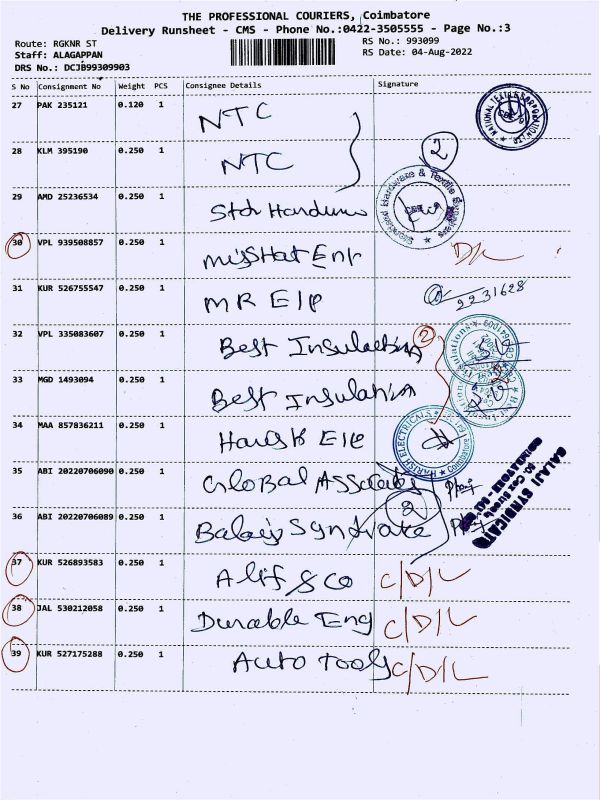 THE PROFESSIONAL COURIERS, Coimbatore
Delivery Runsheet - CMS - Phone No.:0422-3505555 - Page No.:3
Route: RGKNR ST
RS No.: 993099
Staff: ALAGAPPAN
RS Date: 04-Aug-2022
DRS No.: DCJB99309903
S No Consignment No Weight PCS Consignee Details Signature
27 PAK 235121 0.120 1 NTC
28 KLM 395190 0.250 1 NTC 2
29 AMD 25236534 0.250 1 Std Hardware
30 VPL 939508857 0.250 1 D/L
31 KUR 526755547 0.250 1 MR Ele 2231628
32 VPL 335083607 0.250 1 Best Insulation 2
33 MGD 1493094 0.250 1 Best Insulation
34 MAA 857836211 0.250 1 Harish Ele
HARISH ELECTRICALS Coimbatore
35 ABI 20220706090 0.250 1 Global Associates
36 ABI 20220706089 0.250 1 Balaji Syndicate 2
BALAJI SYNDICATE
37 KUR 526893583 0.250 1 Alif & Co C/D/L
38 JAL 530212058 0.250 1 Durable Eng C/D/L
39 KUR 527175288 0.250 1 Auto Tools C/D/L